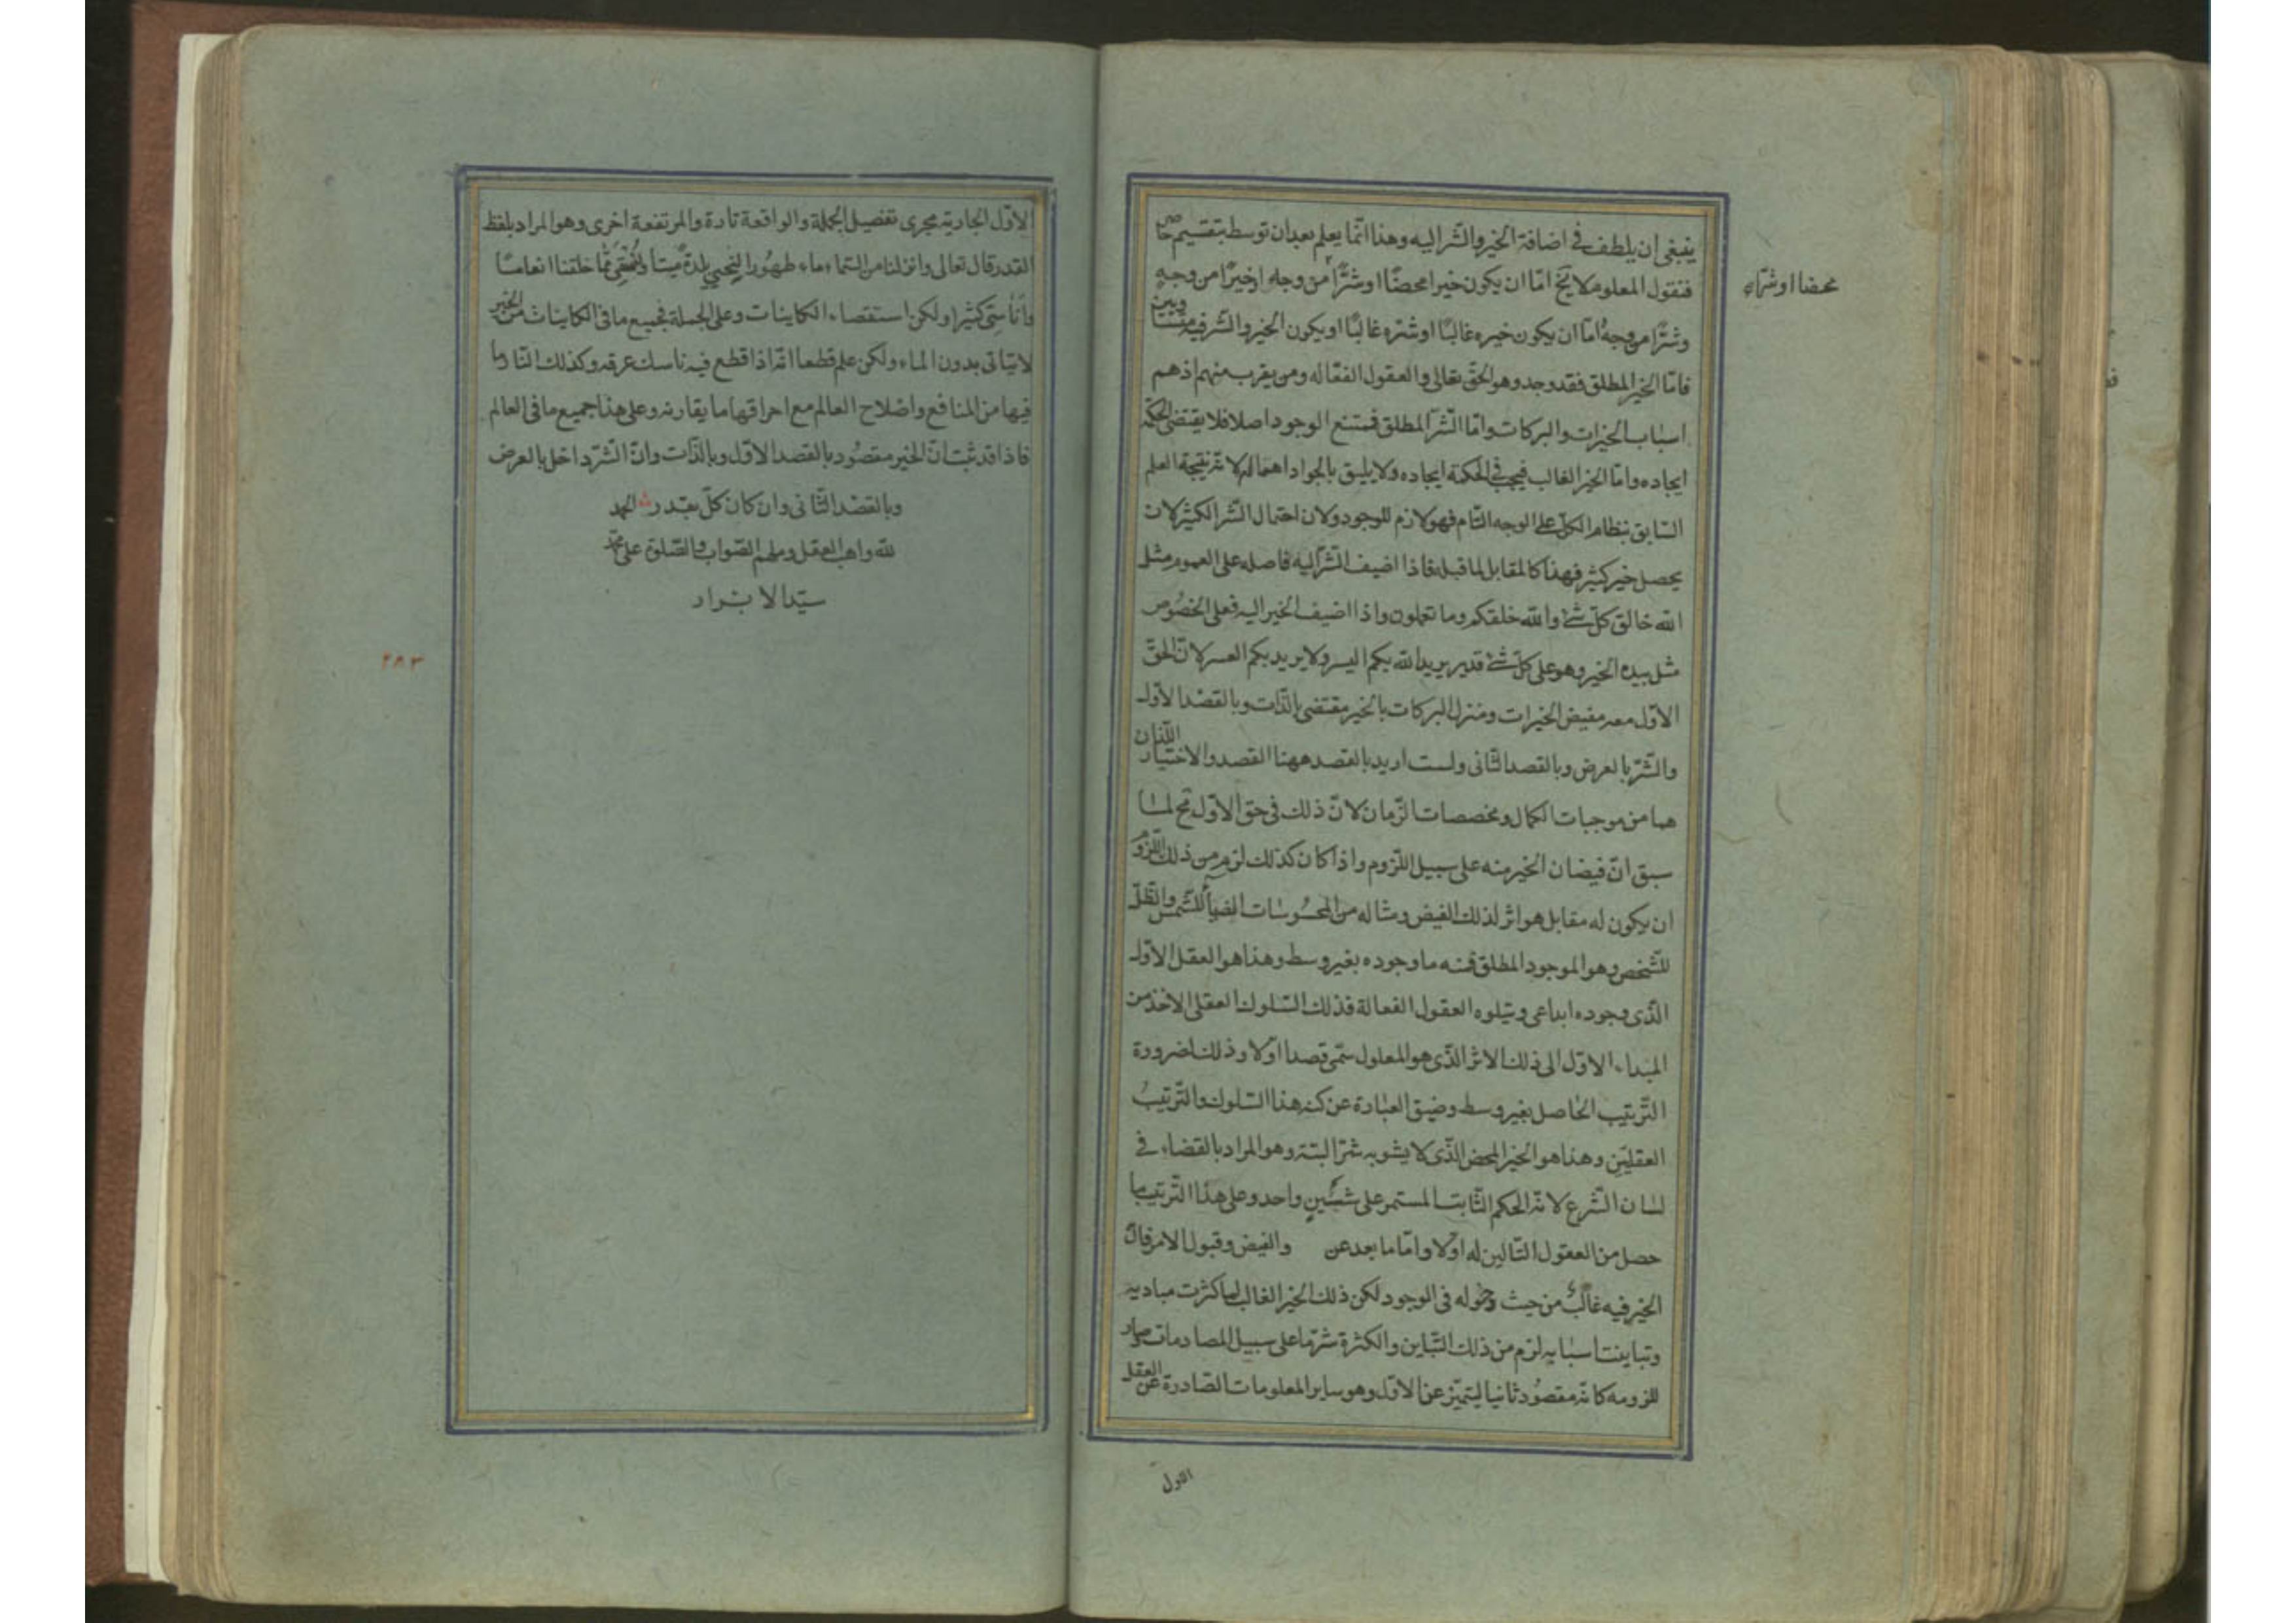 ينبغى ان يلطف فى اضافة الخير والشّر اليه وهذا انّما يعلم بعد ان توسط بتقسيم خاص
فنقول المعلوم لا يخ امّا ان يكون خيرا محضًا او شرًّا من وجه او خيرًا من وجهٍ
محضا او شرّا
وشرًّا من وجهٍ امّا ان يكون خيره غالبًا او شرّه غالبًا او يكون الخير والشّر فيه متساويين
فامّا الخير المطلق فقد وجد وهو الحقّ تعالى والعقول الفعّاله ومن يقرب منهم اذهم
اسباب الخيرات والبركات وامّا الشّر المطلق فممتنع الوجود اصلا فلا يقتضى الحكمة
ايجاده وامّا الخير الغالب فيجب فى الحكمة ايجاده ولا يليق بالجواد اهماله لانّه نتيجة العلم
السّابق بنظام الكلّ على الوجه التّام فهو لازم للوجود ولان احتمال الشّر الكثير لان
يحصل خير كثير فهذا كالمقابل لما قبله فاذا اضيف الشّر اليه فاصله على العموم مثل
الله خالق كلّ شئ والله خلقكم وما تعملون واذا اضيف الخير اليه فعلى الخصُوص
مثل بيده الخير وهو على كلّ شئ قدير يريد الله بكم اليسر ولا يريد بكم العسر لانّ الحقّ
الاوّل معه مفيض الخيرات ومنزل البركات بالخير مقتضى بالذّات وبالقصْد الاوّل
والشّرّ بالعرض وبالقصد الثّانى ولست اريد بالقصد ههنا القصد والاختيار اللّذان
هما من موجبات الكمال ومخصصات الزّمان لانّ ذلك فى حق الاوّل مح لما
سبق انّ فيضان الخير منه على سبيل اللّزوم واذا كان كذلك لزم من ذلك اللّزوم
ان يكون له مقابل هو اثر لذلك الفيض ومثاله من المحسُوسات الضياء للشّمس والظّلّ
للشّخص وهو الموجود المطلق فمنه ما وجوده بغير وسط وهذا هو العقل الاوّل
الّذى وجوده ابداعى ويتلوه العقول الفعالة فذلك السّلوك العقلى الاخذ من
المبداء الاوّل الى ذلك الاثر الّذى هو المعلول سمّى قصدا اوّلا وذلك لضرورة
التّرتيب الحاصل بغير وسط وضيق العبارة عن كنه هذا السّلوك والتّرتيبُ
العقليّين وهذا هو الخير المحض الّذى لا يشوبه شرّ البتّة وهو المراد بالقضاء فى
لسان الشّرع لانّه الحكم الثّابت المستمر على واحد وعلى هذا التّرتيب ما
حصل من العقول التّالين له اوّلا وامّا ما بعد عن والفيض وقبول الامر فان
الخير فيه غالبٌ من حيث دخوله فى الوجود لكن ذلك الخير الغالب لما كثرت مباديه
وتباينت اسبابه لزم من ذلك التّباين والكثرة شرّ ما على سبيل المصادمات وصار
للزومه كانّه مقصُود ثانيا ليتميّز عن الاوّل وهو ساير المعلومات الصّادرة عن العقل
الاول
الاوّل الجارية مجرى تفصيل الجملة والواقعة تارة والمرتفعة اخرى وهو المراد بلفظ
القدر قال تعالى وانزلنا من السّماء ماء طهُورا لنحيى بلدةً ميتًا ونُسْقِيَه ممّا خلقنا انعامًا
واَناسىّ كثيرا ولكن استقصاء الكاينات وعلى الجملة فجميع ما فى الكاينات من الخير
لا يتاتى بدون الماء ولكن علم قطعا انّه اذا قطع فيه ناسك عرقه وكذلك النّار وما
فيها من المنافع واصْلاح العالم مع احراقها ما يقارنه وعلى هذا جميع ما فى العالم
فاذا قد ثبت انّ الخير مقصُود بالقصد الاوّل وبالذّات وانّ الشّرّ داخل بالعرض
وبالقصْد الثّانى وان كان كلّ بقدر الحمد
لله واهب العقل وملهم الصّواب والصّلوة على محمّد
سيّد الابرار
٢٨٣